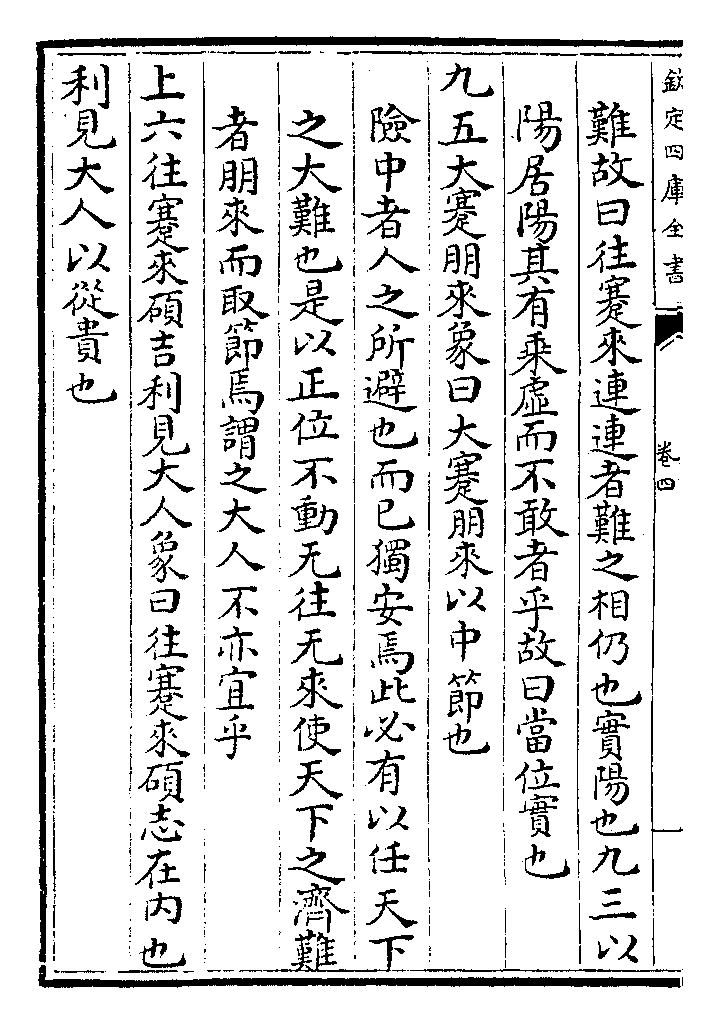 欽定四庫全書
卷四
難故曰往蹇來連連者難之相仍也實陽也九三以
陽居陽其有乘虛而不敢者乎故曰當位實也
九五大蹇朋來象曰大蹇朋來以中節也
險中者人之所避也而已獨安焉此必有以任天下
之大難也是以正位不動无往无來使天下之濟難
者朋來而取節焉謂之大人不亦宜乎
上六往蹇來碩吉利見大人象曰往蹇來碩志在內也
利見大人以從貴也